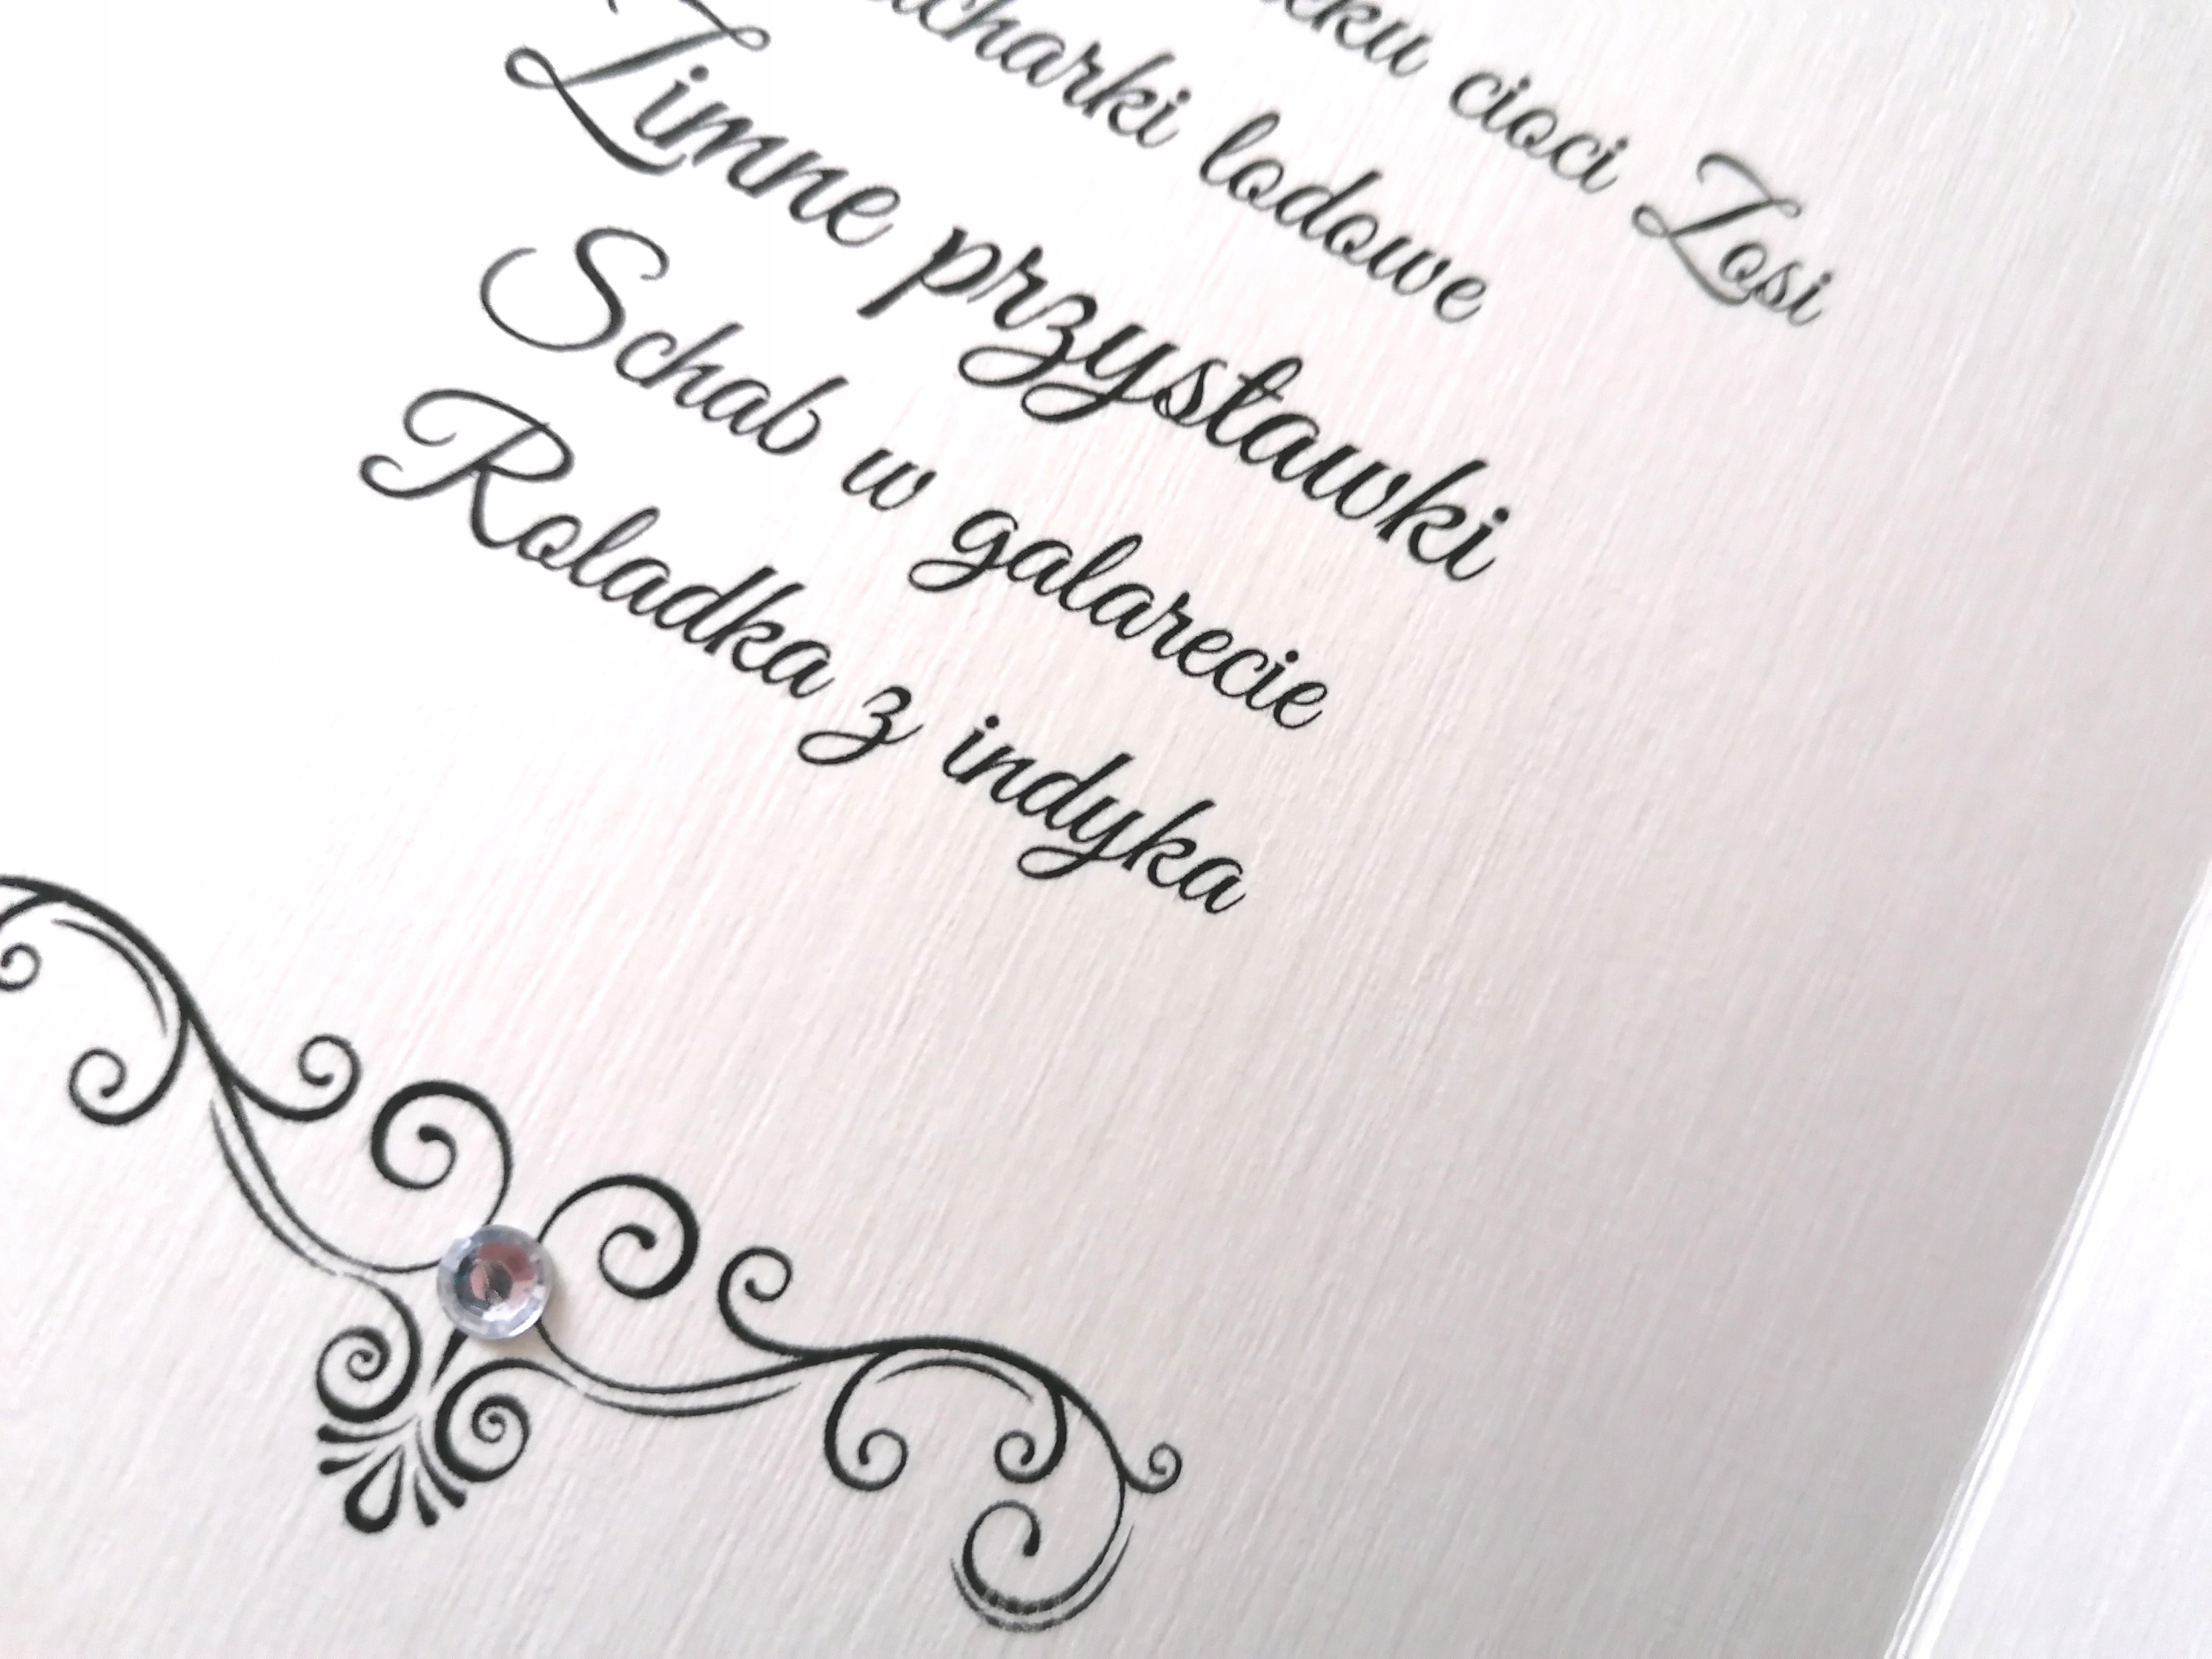 cioci Zosi
lodowe
Zimne przystawki
Schab w galarecie
Roladka z indyka